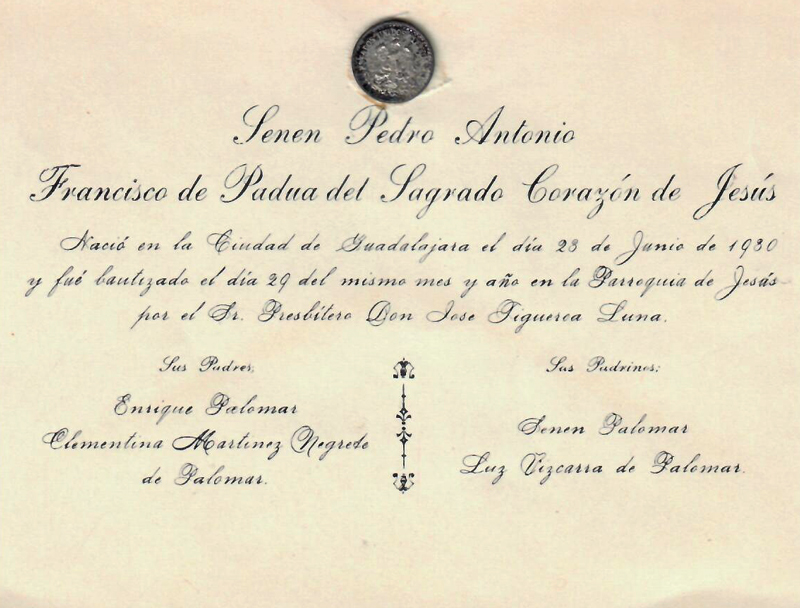 Senen Pedro Antonio
Francisco de Padua del Sagrado Corazón de Jesús
Nació en la Ciudad de Guadalajara el día 23 de Junio de 1930
y fué bautizado el día 29 del mismo mes y año en la Parroquia de Jesús
por el Sr. Presbítero Don Jose Figueroa Luna.
Sus Padres:
Enrique Palomar
Clementina Martinez Negrete
de Palomar.
Sus Padrinos:
Senen Palomar
Luz Vizcarra de Palomar.